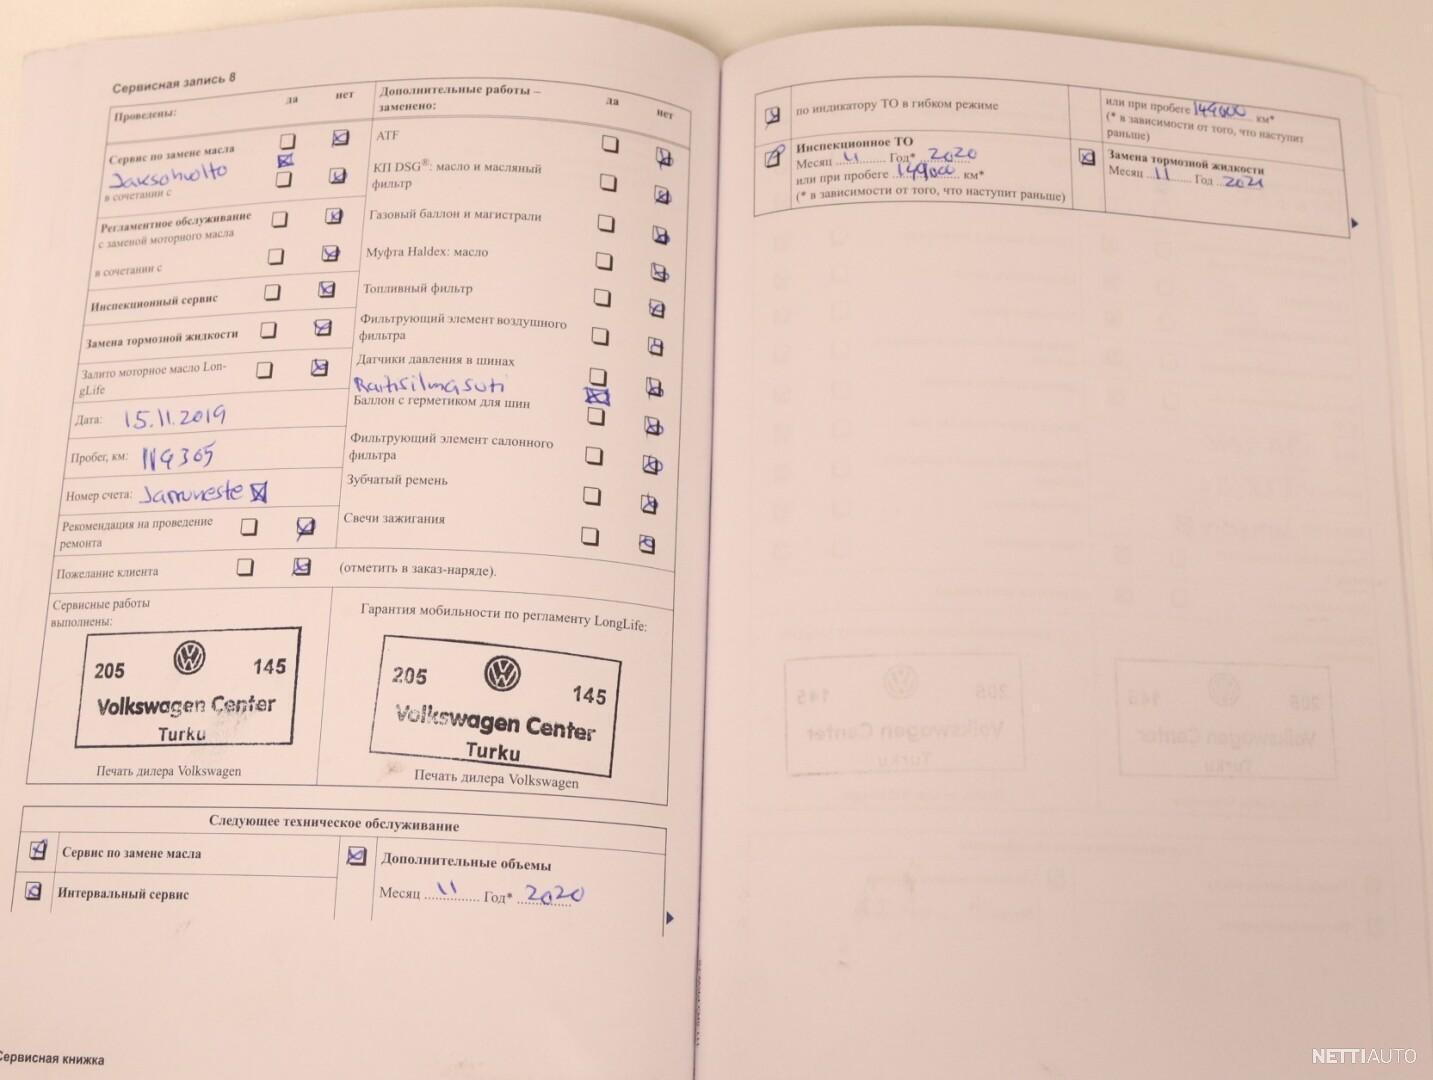 Сервисная запись 8
Проведены:
да
нет
Сервис по замене масла
Jaksohuolto
в сочетании с
Регламентное обслуживание
с заменой моторного масла
в сочетании с
Инспекционный сервис
Замена тормозной жидкости
Залито моторное масло Lon-
gLife
Дата: 15.11.2019
Пробег, км: 119365
Номер счета: Jarruneste
Рекомендация на проведение
ремонта
Пожелание клиента
(отметить в заказ-наряде).
Дополнительные работы –
заменено:
да
нет
ATF
КП DSG®: масло и масляный
фильтр
Газовый баллон и магистрали
Муфта Haldex: масло
Топливный фильтр
Фильтрующий элемент воздушного
фильтра
Датчики давления в шинах
Raitisilmasuoti
Баллон с герметиком для шин
Фильтрующий элемент салонного
фильтра
Зубчатый ремень
Свечи зажигания
Сервисные работы
выполнены:
205
145
Volkswagen Center
Turku
Печать дилера Volkswagen
Гарантия мобильности по регламенту LongLife:
205
145
Volkswagen Center
Turku
Печать дилера Volkswagen
Следующее техническое обслуживание
Сервис по замене масла
Интервальный сервис
Дополнительные объемы
Месяц 11 Год* 2020
Сервисная книжка
по индикатору ТО в гибком режиме
Инспекционное ТО
Месяц 11 Год* 2020
или при пробеге 149000 км*
(* в зависимости от того, что наступит раньше)
или при пробеге 149000 км*
(* в зависимости от того, что наступит
раньше)
Замена тормозной жидкости
Месяц 11 Год 2021
NETTIAUTO